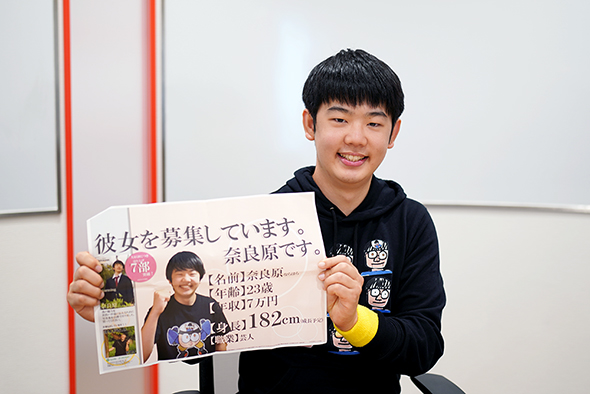 彼女を募集しています。
奈良原です。
7部
【名前】奈良原
【年齢】23歳
【年収】7万円
【身長】182cm(成長予定)
【職業】芸人